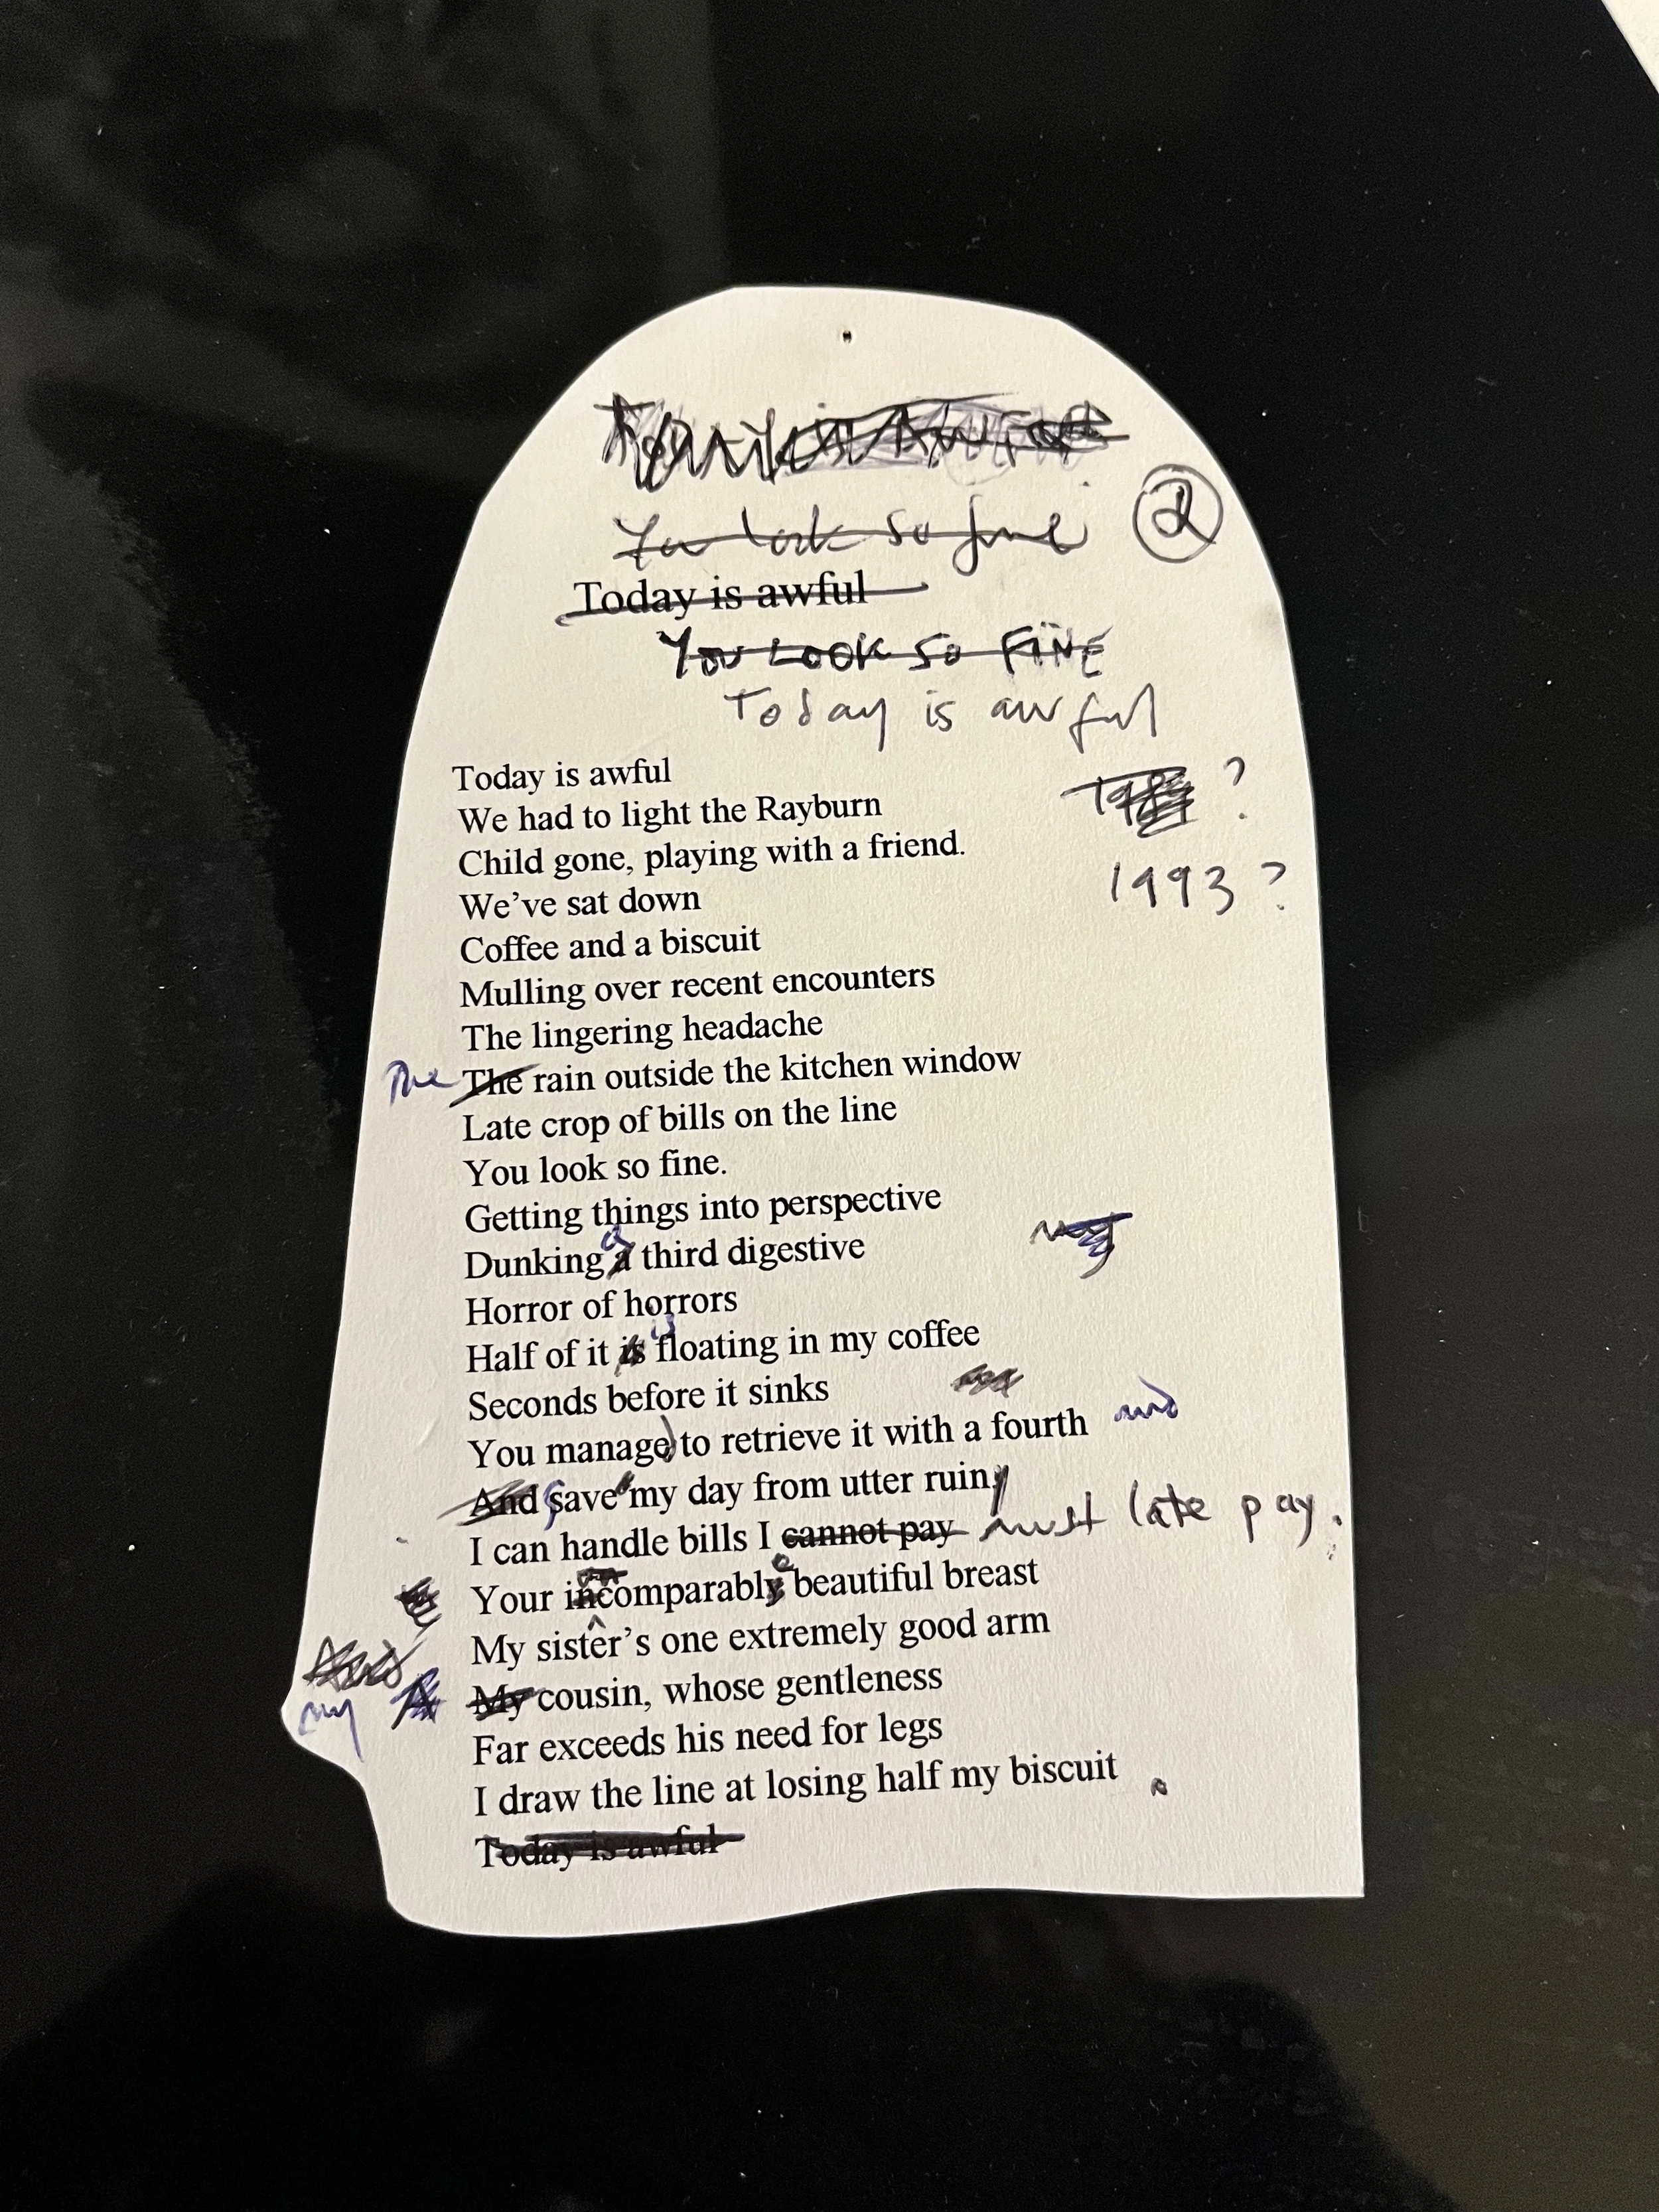 You look so fine
2
Today is awful
YOU LOOK SO FINE
Today is awful
Today is awful
?
We had to light the Rayburn
Child gone, playing with a friend.
1993 ?
We've sat down
Coffee and a biscuit
Mulling over recent encounters
The lingering headache
The The rain outside the kitchen window
Late crop of bills on the line
You look so fine.
Getting things into perspective
Dunking a a third digestive
Horror of horrors
Half of it is is floating in my coffee
Seconds before it sinks
You manage to retrieve it with a fourth and
And save my day from utter ruin
I can handle bills I cannot pay must late pay.
Your incomparable beautiful breast
My sister's one extremely good arm
And
my My cousin, whose gentleness
Far exceeds his need for legs
I draw the line at losing half my biscuit.
Today is awful